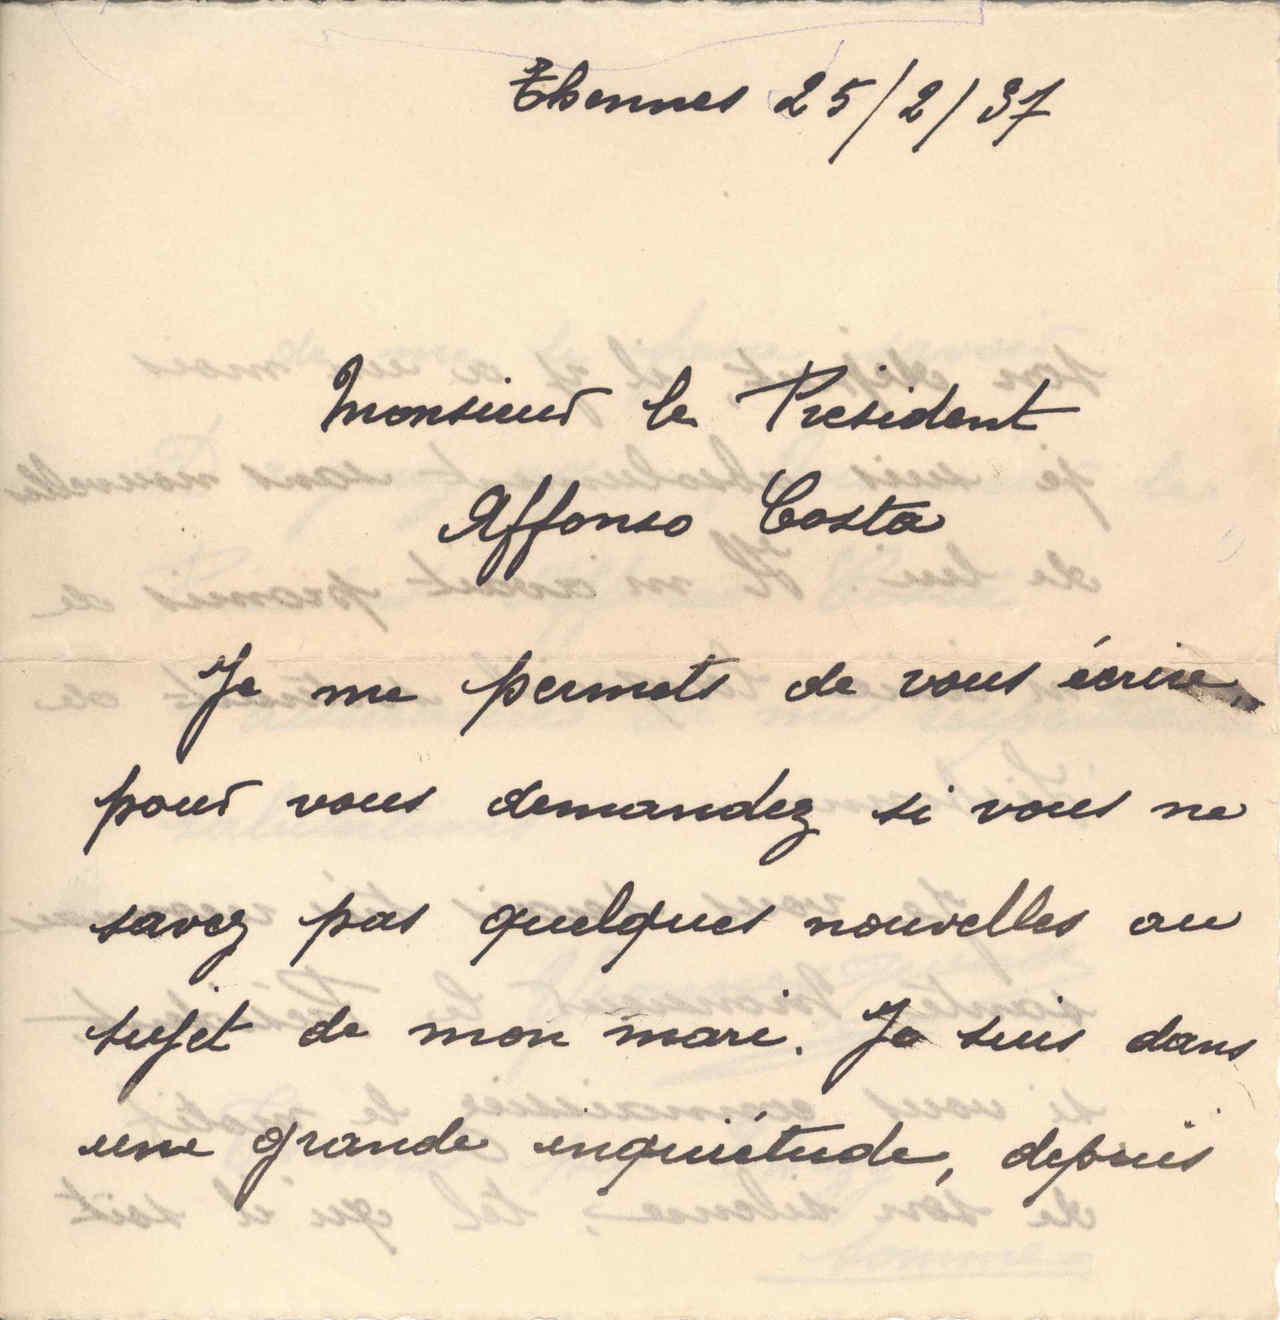 Thennes 25/2/37
Monsieur le Président
Affonso Costa
Je me permets de vous écrire,
pour vous demandez si vous ne
savez pas quelques nouvelles au
sujet de mon mari. Je suis dans
une grande inquiétude, depuis